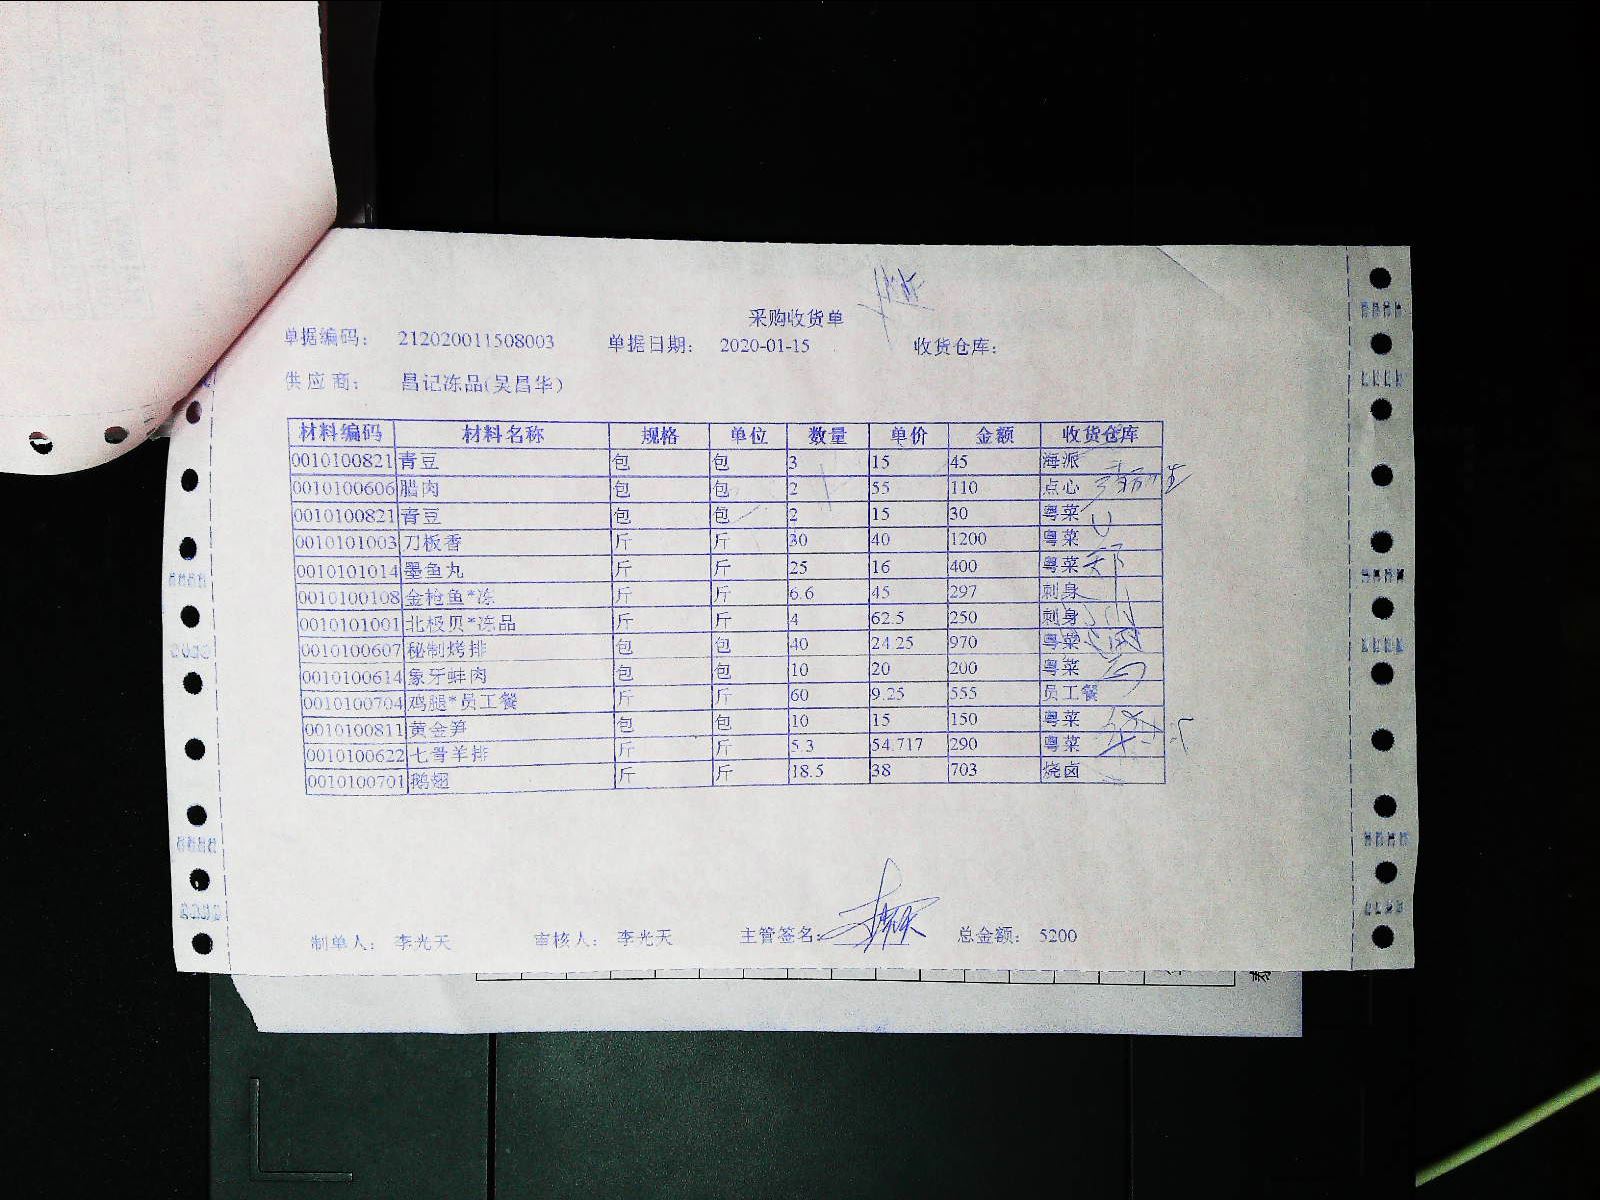 采购收货单
单据编码： 212020011508003 单据日期： 2020-01-15 收货仓库：
供应商： 昌记冻品(吴昌华)
材料编码 材料名称 规格 单位 数量 单价 金额 收货仓库
0010100821 青豆 包 包 3 15 45 海派
0010100606 腊肉 包 包 2 55 110 点心
0010100821 青豆 包 包 2 15 30 粤菜
0010101003 刀板香 斤 斤 30 40 1200 粤菜
0010101014 墨鱼丸 斤 斤 25 16 400 粤菜
0010100108 金枪鱼*冻 斤 斤 6.6 45 297 刺身
0010101001 北极贝*冻品 斤 斤 4 62.5 250 刺身
0010100607 秘制烤排 包 包 40 24.25 970 粤菜
0010100614 象牙蚌肉 包 包 10 20 200 粤菜
0010100704 鸡腿*员工餐 斤 斤 60 9.25 555 员工餐
0010100811 黄金笋 包 包 10 15 150 粤菜
0010100622 七骨羊排 斤 斤 5.3 54.717 290 粤菜
0010100701 鹅翅 斤 斤 18.5 38 703 烧卤
制单人： 李光天 审核人： 李光天 主管签名： 总金额： 5200